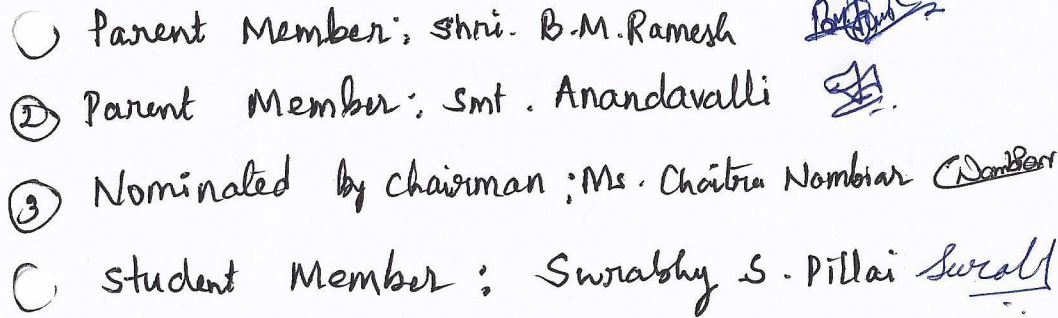 Parent Member: Shri. B.M. Ramesh
② Parent Member: Smt. Anandavalli
③ Nominated by Chairman: Ms. Chaitra Nambiar CNambiar
Student Member: Surabhy S. Pillai Surabh